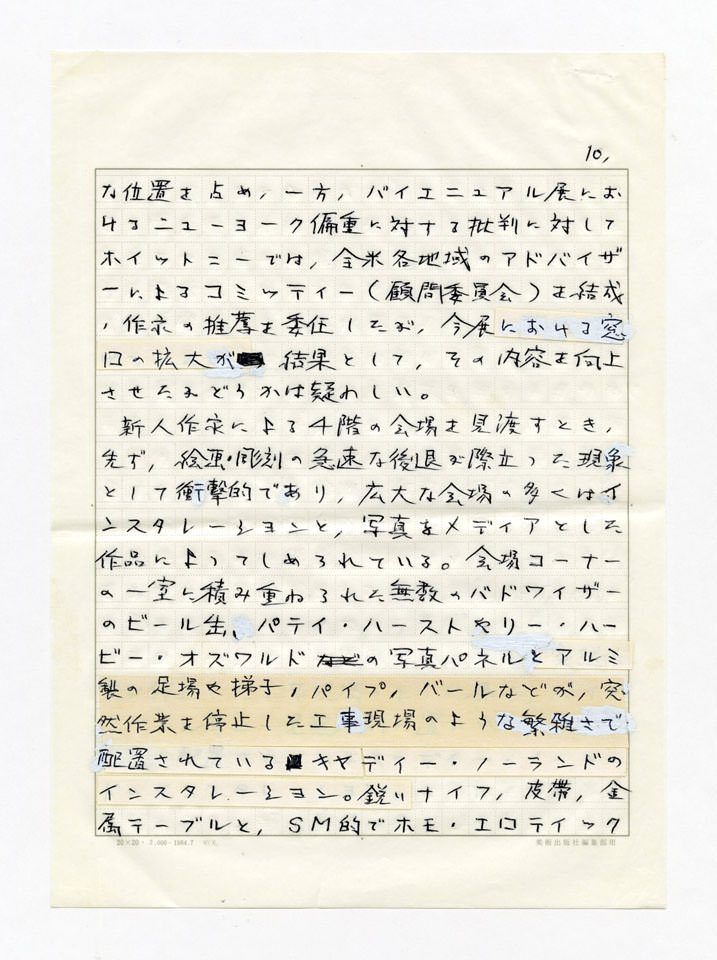 10,
な位置を占め,一方,バイエニュアル展にお
けるニューヨーク偏重に対する批判に対して
ホイットニーでは,全米各地域のアドバイザ
ーによるコミッティー(顧問委員会)を結成
,作家の推薦を委任したが,今展における窓
口の拡大が 結果として,その内容を向上
させたかどうかは疑わしい。
新人作家による4階の会場を見渡すとき,
先ず,絵画・彫刻の急速な後退が際立った現象
として衝撃的であり,広大な会場の多くはイ
ンスタレーションと,写真をメディアとした
作品によってしめられている。会場コーナー
の一室に積み重ねられた無数のバドワイザー
のビール缶、パティ・ハーストやリー・ハー
ビー・オズワルド の写真パネルとアルミ
製の足場や梯子,パイプ,バールなどが,突
然作業を停止した工事現場のような繁雑さで
配置されている キャディー・ノーランドの
インスタレーション。鋭いナイフ,皮帯,金
属テーブルと,SM的でホモ・エロティック
20×20・ 7,000-1984.7 美術出版社編集部用